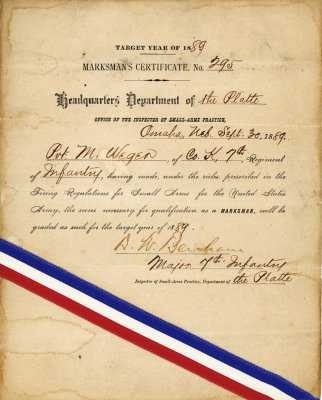 TARGET YEAR OF 1889
MARKSMAN'S CERTIFICATE, No. 295
Headquarters Department of the Platte
OFFICE OF THE INSPECTOR OF SMALL-ARMS PRACTICE,
Omaha, Neb. Sept. 30, 1889.
Pvt M. Weger, of Co. K, 7th Regiment
of Infantry, having made, under the rules prescribed in the
Firing Regulations for Small Arms for the United States
Army, the scores necessary for qualification as a MARKSMAN, will be
graded as such for the target year of 1889.
Major 7th Infantry
Inspector of Small-Arms Practice, Department of the Platte